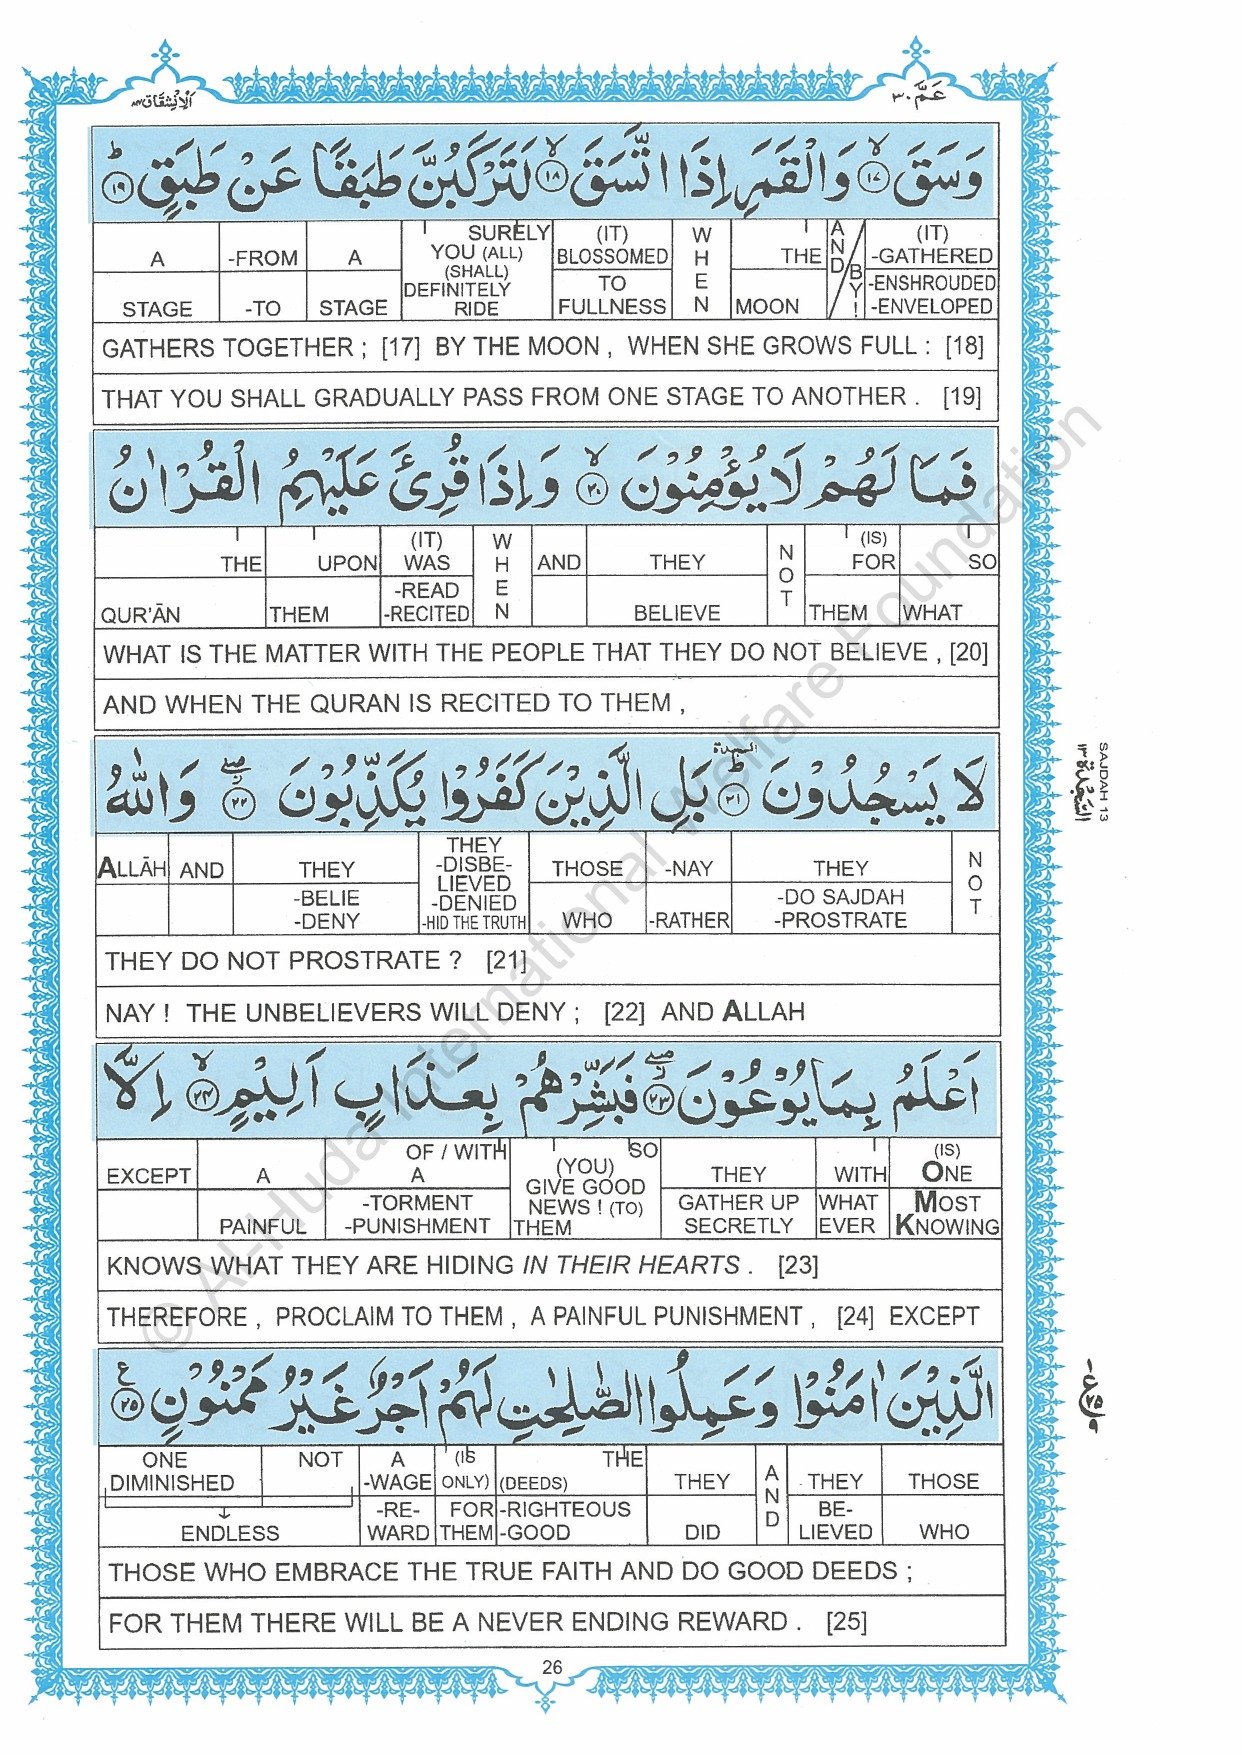 اَلْاِنْشِقَاق ٨٤
عَمَّ ٣٠
وَسَقَ ۙ‏﴿١٧﴾ وَالْقَمَرِ اِذَا اتَّسَقَ ۙ‏﴿١٨﴾ لَتَرْكَبُنَّ طَبَقًا عَنْ طَبَقٍ ؕ‏﴿١٩﴾
A STAGE
-FROM -TO
A STAGE
SURELY YOU (ALL) (SHALL) DEFINITELY RIDE
(IT) BLOSSOMED TO FULLNESS
WHEN
THE MOON
AND/BY!
(IT) -GATHERED -ENSHROUDED -ENVELOPED
GATHERS TOGETHER ; [17] BY THE MOON , WHEN SHE GROWS FULL : [18]
THAT YOU SHALL GRADUALLY PASS FROM ONE STAGE TO ANOTHER . [19]
فَمَا لَهُمْ لَا يُؤْمِنُوْنَ ۙ‏﴿٢٠﴾ وَاِذَا قُرِئَ عَلَيْهِمُ الْقُرْاٰنُ
THE QUR'ĀN
UPON THEM
(IT) WAS -READ -RECITED
WHEN
AND
THEY BELIEVE
NOT
(IS) FOR THEM
SO WHAT
WHAT IS THE MATTER WITH THE PEOPLE THAT THEY DO NOT BELIEVE , [20]
AND WHEN THE QURAN IS RECITED TO THEM ,
لَا يَسْجُدُوْنَ ؕ‏ السجدة ﴿٢١﴾ بَلِ الَّذِيْنَ كَفَرُوْا يُكَذِّبُوْنَ ۖ‏﴿٢٢﴾ وَاللّٰهُ
ALLĀH
AND
THEY -BELIE -DENY
THEY -DISBE-LIEVED -DENIED -HID THE TRUTH
THOSE WHO
-NAY -RATHER
THEY -DO SAJDAH -PROSTRATE
NOT
THEY DO NOT PROSTRATE ? [21]
NAY ! THE UNBELIEVERS WILL DENY ; [22] AND ALLAH
SAJDAH 13
السَّجْدَة ١٣
اَعْلَمُ بِمَا يُوْعُوْنَ ۖ‏﴿٢٣﴾ فَبَشِّرْهُمْ بِعَذَابٍ اَلِيْمٍ ۙ‏﴿٢٤﴾ اِلَّا
EXCEPT
A PAINFUL
OF / WITH A -TORMENT -PUNISHMENT
SO (YOU) GIVE GOOD NEWS ! (TO) THEM
THEY GATHER UP SECRETLY
WITH WHAT EVER
(IS) ONE MOST KNOWING
KNOWS WHAT THEY ARE HIDING IN THEIR HEARTS . [23]
THEREFORE , PROCLAIM TO THEM , A PAINFUL PUNISHMENT , [24] EXCEPT
الَّذِيْنَ اٰمَنُوْا وَعَمِلُوا الصّٰلِحٰتِ لَهُمْ اَجْرٌ غَيْرُ مَمْنُوْنٍ ع ﴿٢٥﴾
ONE DIMINISHED
NOT
ENDLESS
A -WAGE -RE-WARD
(IS ONLY) FOR THEM
THE (DEEDS) -RIGHTEOUS -GOOD
THEY DID
AND
THEY BE-LIEVED
THOSE WHO
THOSE WHO EMBRACE THE TRUE FAITH AND DO GOOD DEEDS ;
FOR THEM THERE WILL BE A NEVER ENDING REWARD . [25]
26
© Al-Huda International Welfare Foundation